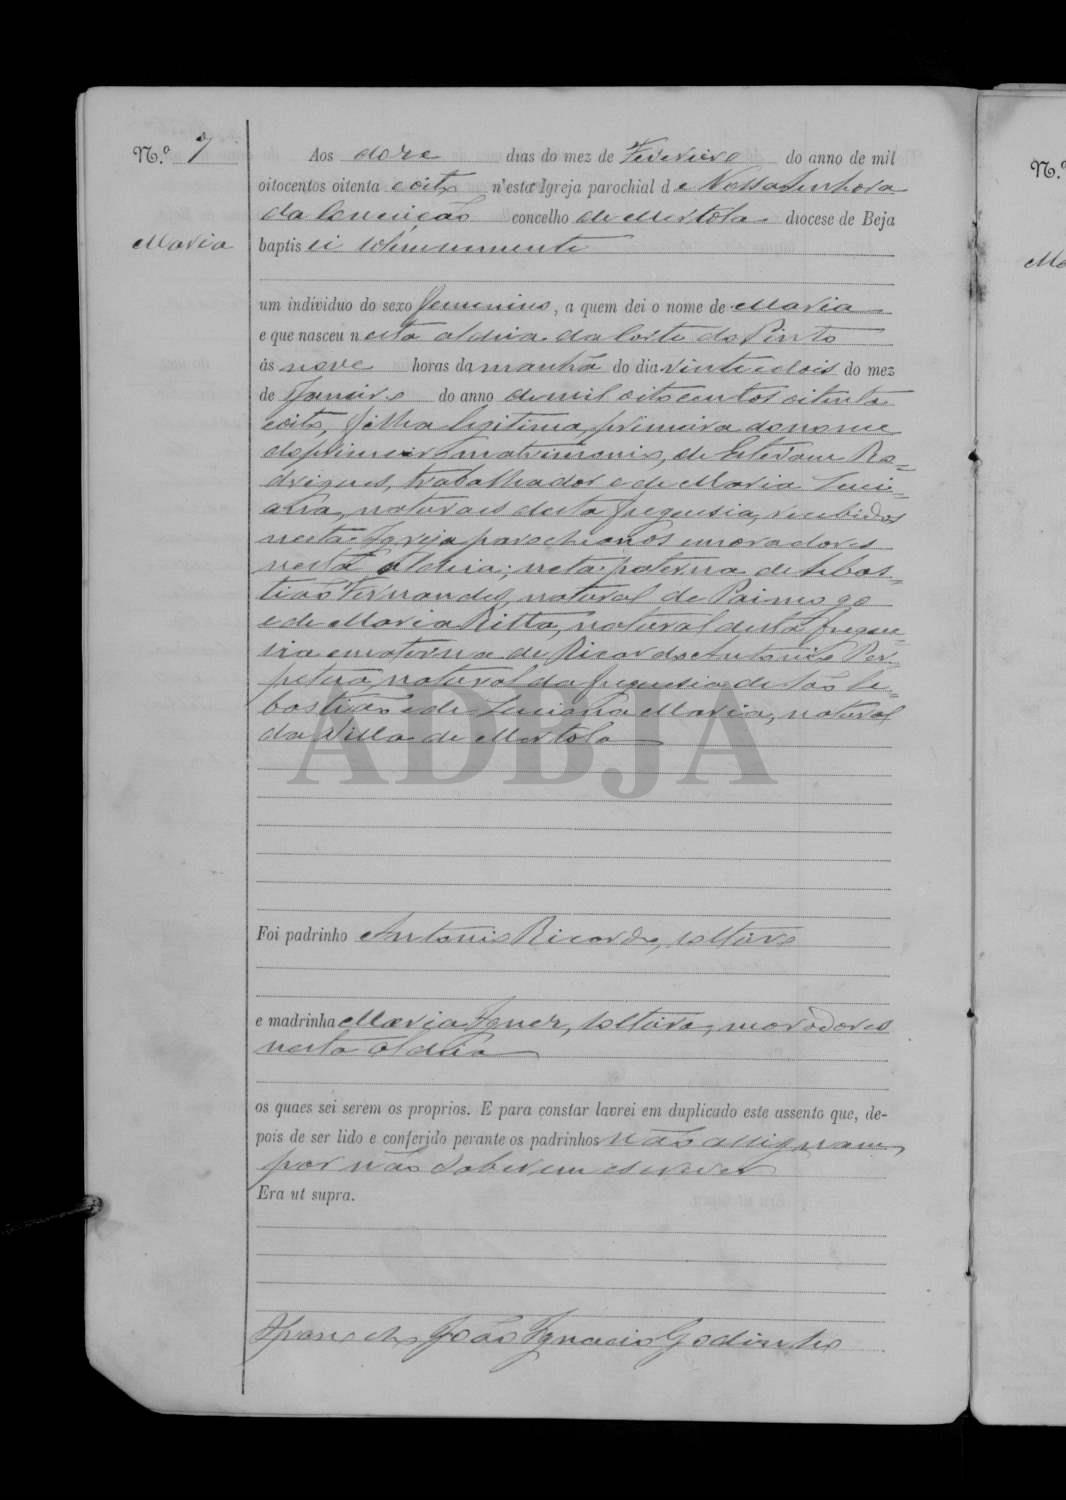 N.º 7
Aos doze dias do mez de Fevereiro do anno de mil
oitocentos oitenta e oito n'esta Igreja parochial de Nossa Senhora
da Conceição concelho de Mertola diocese de Beja
Maria
baptisei solemnemente
um individuo do sexo femenino, a quem dei o nome de Maria
e que nasceu nesta aldeia da Corte do Pinto
ás nove horas da manhã do dia vinte e dois do mez
de Janeiro do anno de mil oitocentos oitenta
eoito, filha legitima, primeira do nome
do primeiro matrimonio, de Estevam Ro-
drigues, trabalhador e de Maria Luci-
ana, naturaes desta freguesia, recebidos
nesta Igreja parochianos e moradores
nesta aldeia; neta paterna de Sebas-
tião Fernandes, natural de Paimogo
e de Maria Ritta, natural desta fregue-
sia e materna de Ricardo Antonio Per-
petua, natural da freguesia de São Se-
bastião e de Luciana Maria, natural
da Villa de Mertola
ADBJA
Foi padrinho Antonio Ricardo, solteiro
e madrinha Maria Ignez, solteira, moradores
nesta aldeia
os quaes sei serem os proprios. E para constar lavrei em duplicado este assento que, de-
pois de ser lido e conferido perante os padrinhos não assignam,
por não saberem escrever
Era ut supra.
João Ignacio Godinho
N.º
Ma